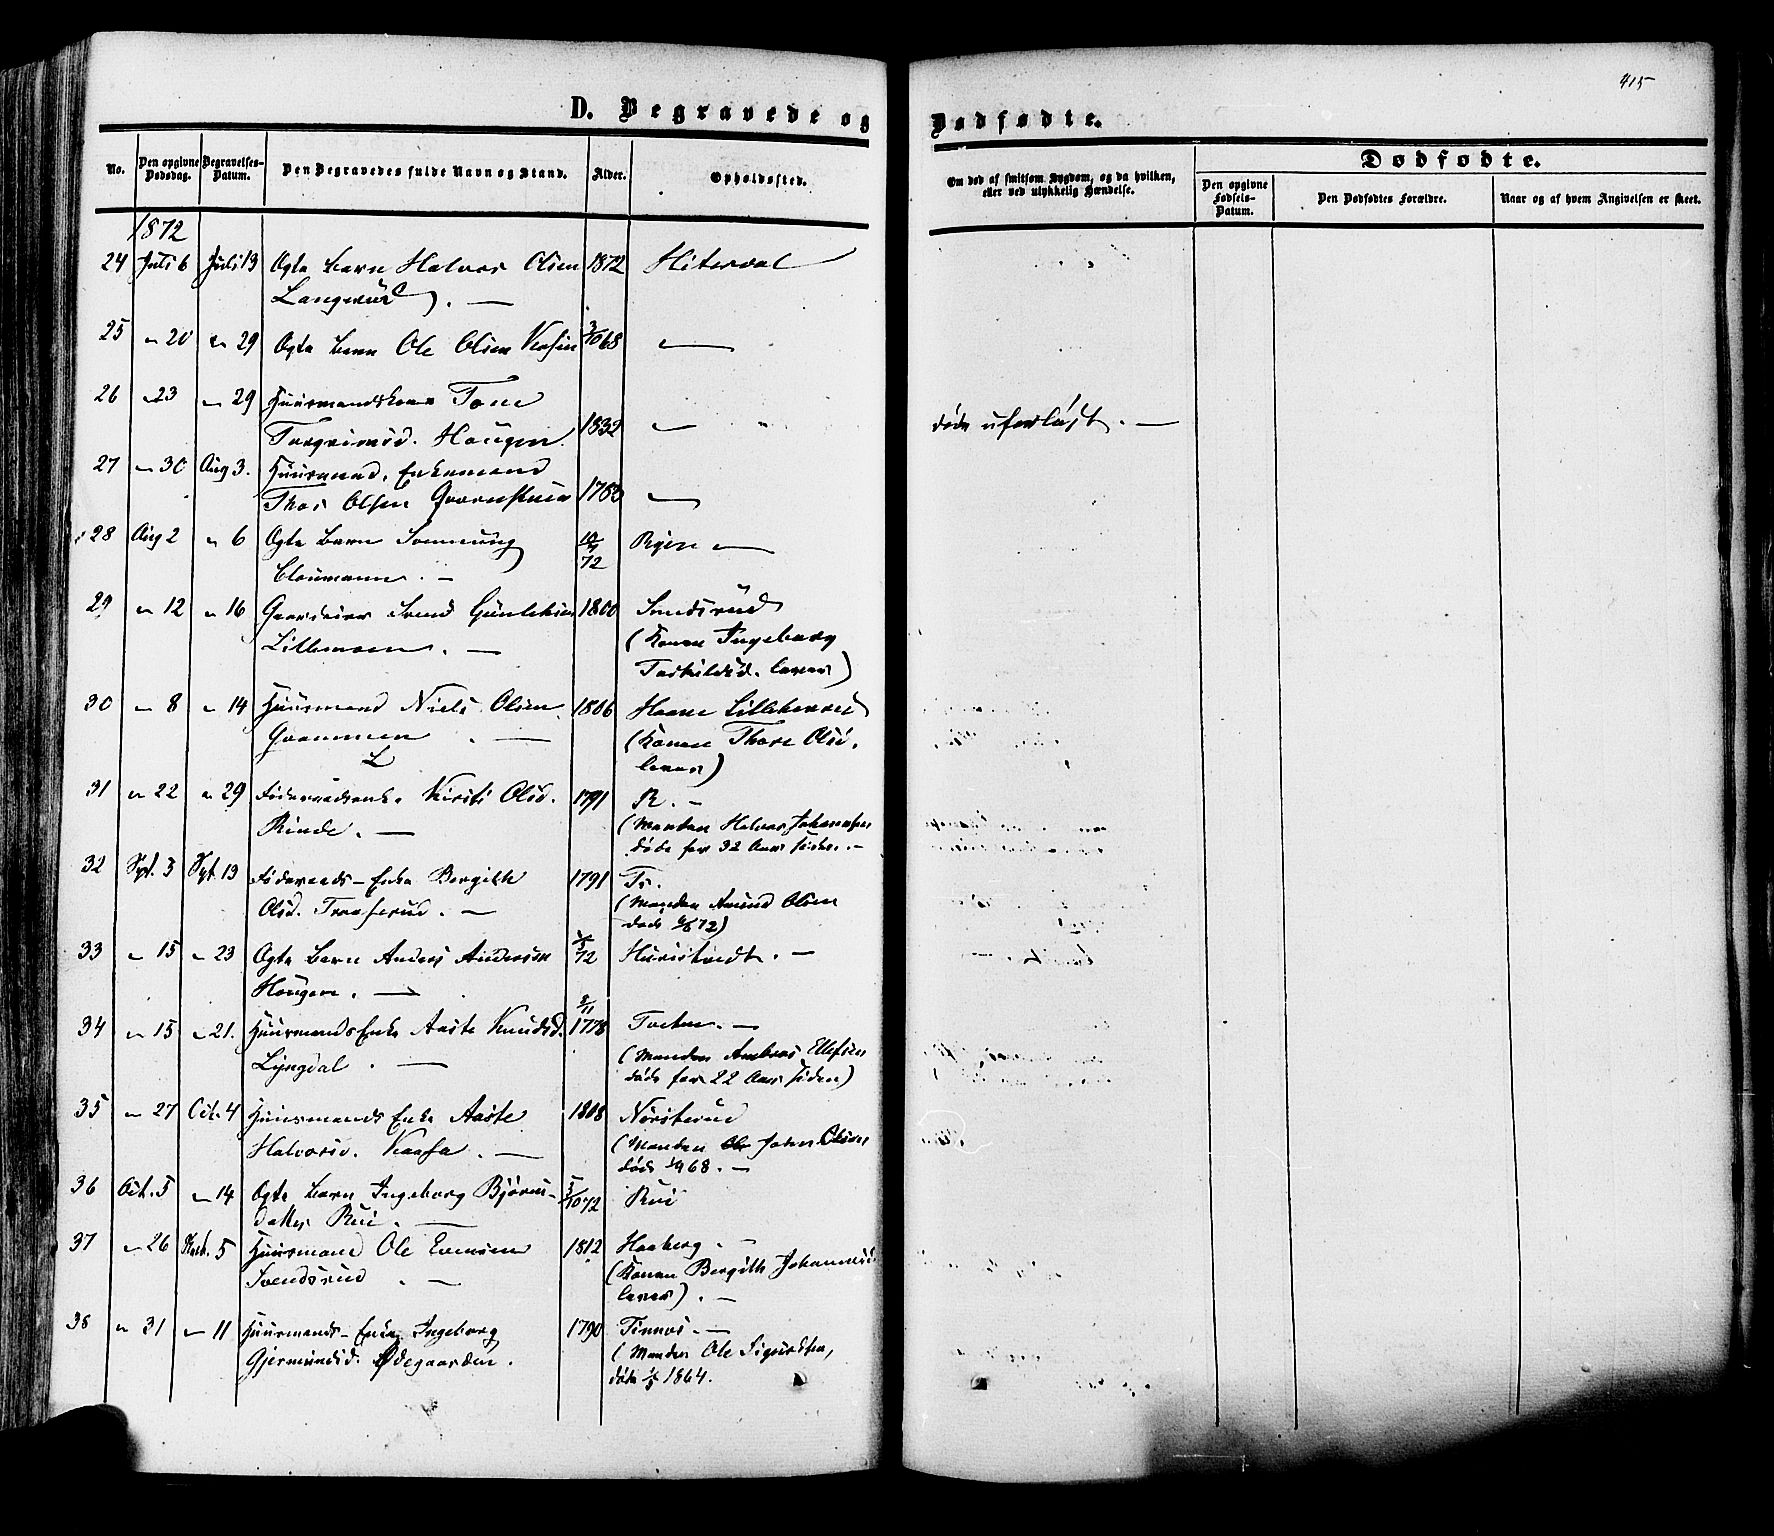 415
D. Begravede og Dødfødte.
No. Den opgivne Dødsdag. Begravelses-Datum. Den Begravedes fulde Navn og Stand. Alder. Opholdssted. Om død af smitsom Sygdom, og da hvilken, eller ved ulykkelig Hændelse.
Dødfødte.
Den opgivne Fødsels-Datum. Den Dødfødtes Forældre. Naar og af hvem Angivelsen er skeet.
1872
24 Juli 6 Juli 13 Ægte Barn Halvor Olsen 1872 Hiterdal
Langerud. —
25 " 20 " 29 Ægte Barn Ole Olsen 3/10 68 —
26 " 23 " 29 Huusmandskone Tone
Torgrimsd. Haugen. 1832 — døde uforløst. —
27 " 30 Aug 3. Huusmand, Enkemand
Thor Olsen 178 —
28 Aug 2 " 6 Ægte Barn
72 —
29 " 12 " 16 Gaardeier Svend Gunleksen 1800 Sundsrud
Lillemoen. — (Konen Ingeborg
Torkildsd. lever)
30 " 8 " 14 Huusmand Niels Olsen 1806
— (Konen Thore Olsd.
lever)
31 " 22 " 29 Føderaadsenke Kirsti Olsd. 1791 R. —
Rinde. — (Manden Halvor Johannesen
døde for 32 Aar siden. —
32 Spt. 3 Spt 13 Føderaads-Enke Bergith 1791 Ts.
Olsd. — (Manden Amund Olsen
døde 72)
33 " 15 " 23 Ægte Barn Anders Andersen 72 —
Haugen. —
34 " 15 " 21. Huusmands Enke Aaste Knudsd. 8/11 1778 —
Lyngdal. — (Manden Ellefsen
døde for 22 Aar siden)
35 " 27 Oct. 4 Huusmands Enke Aaste 1808 Nørsterud
Halvorsd. Kaasa. — (Manden John Olsen
døde 68. —
36 Oct. 5 " 14 Ægte Barn Ingeborg Bjørns- 72 Rui
datter Rui. —
37 " 26 5 Huusmand Ole Evensen 1812 Haaberg. —
Svendsrud. — (Konen Bergith Johannesd.
lever). —
38 " 31 " 11 Huusmands-Enke Ingeborg 1790 Tinnes. —
Gjermundsd. Ødegaarden. (Manden Ole Sigurdsen,
døde 1864.